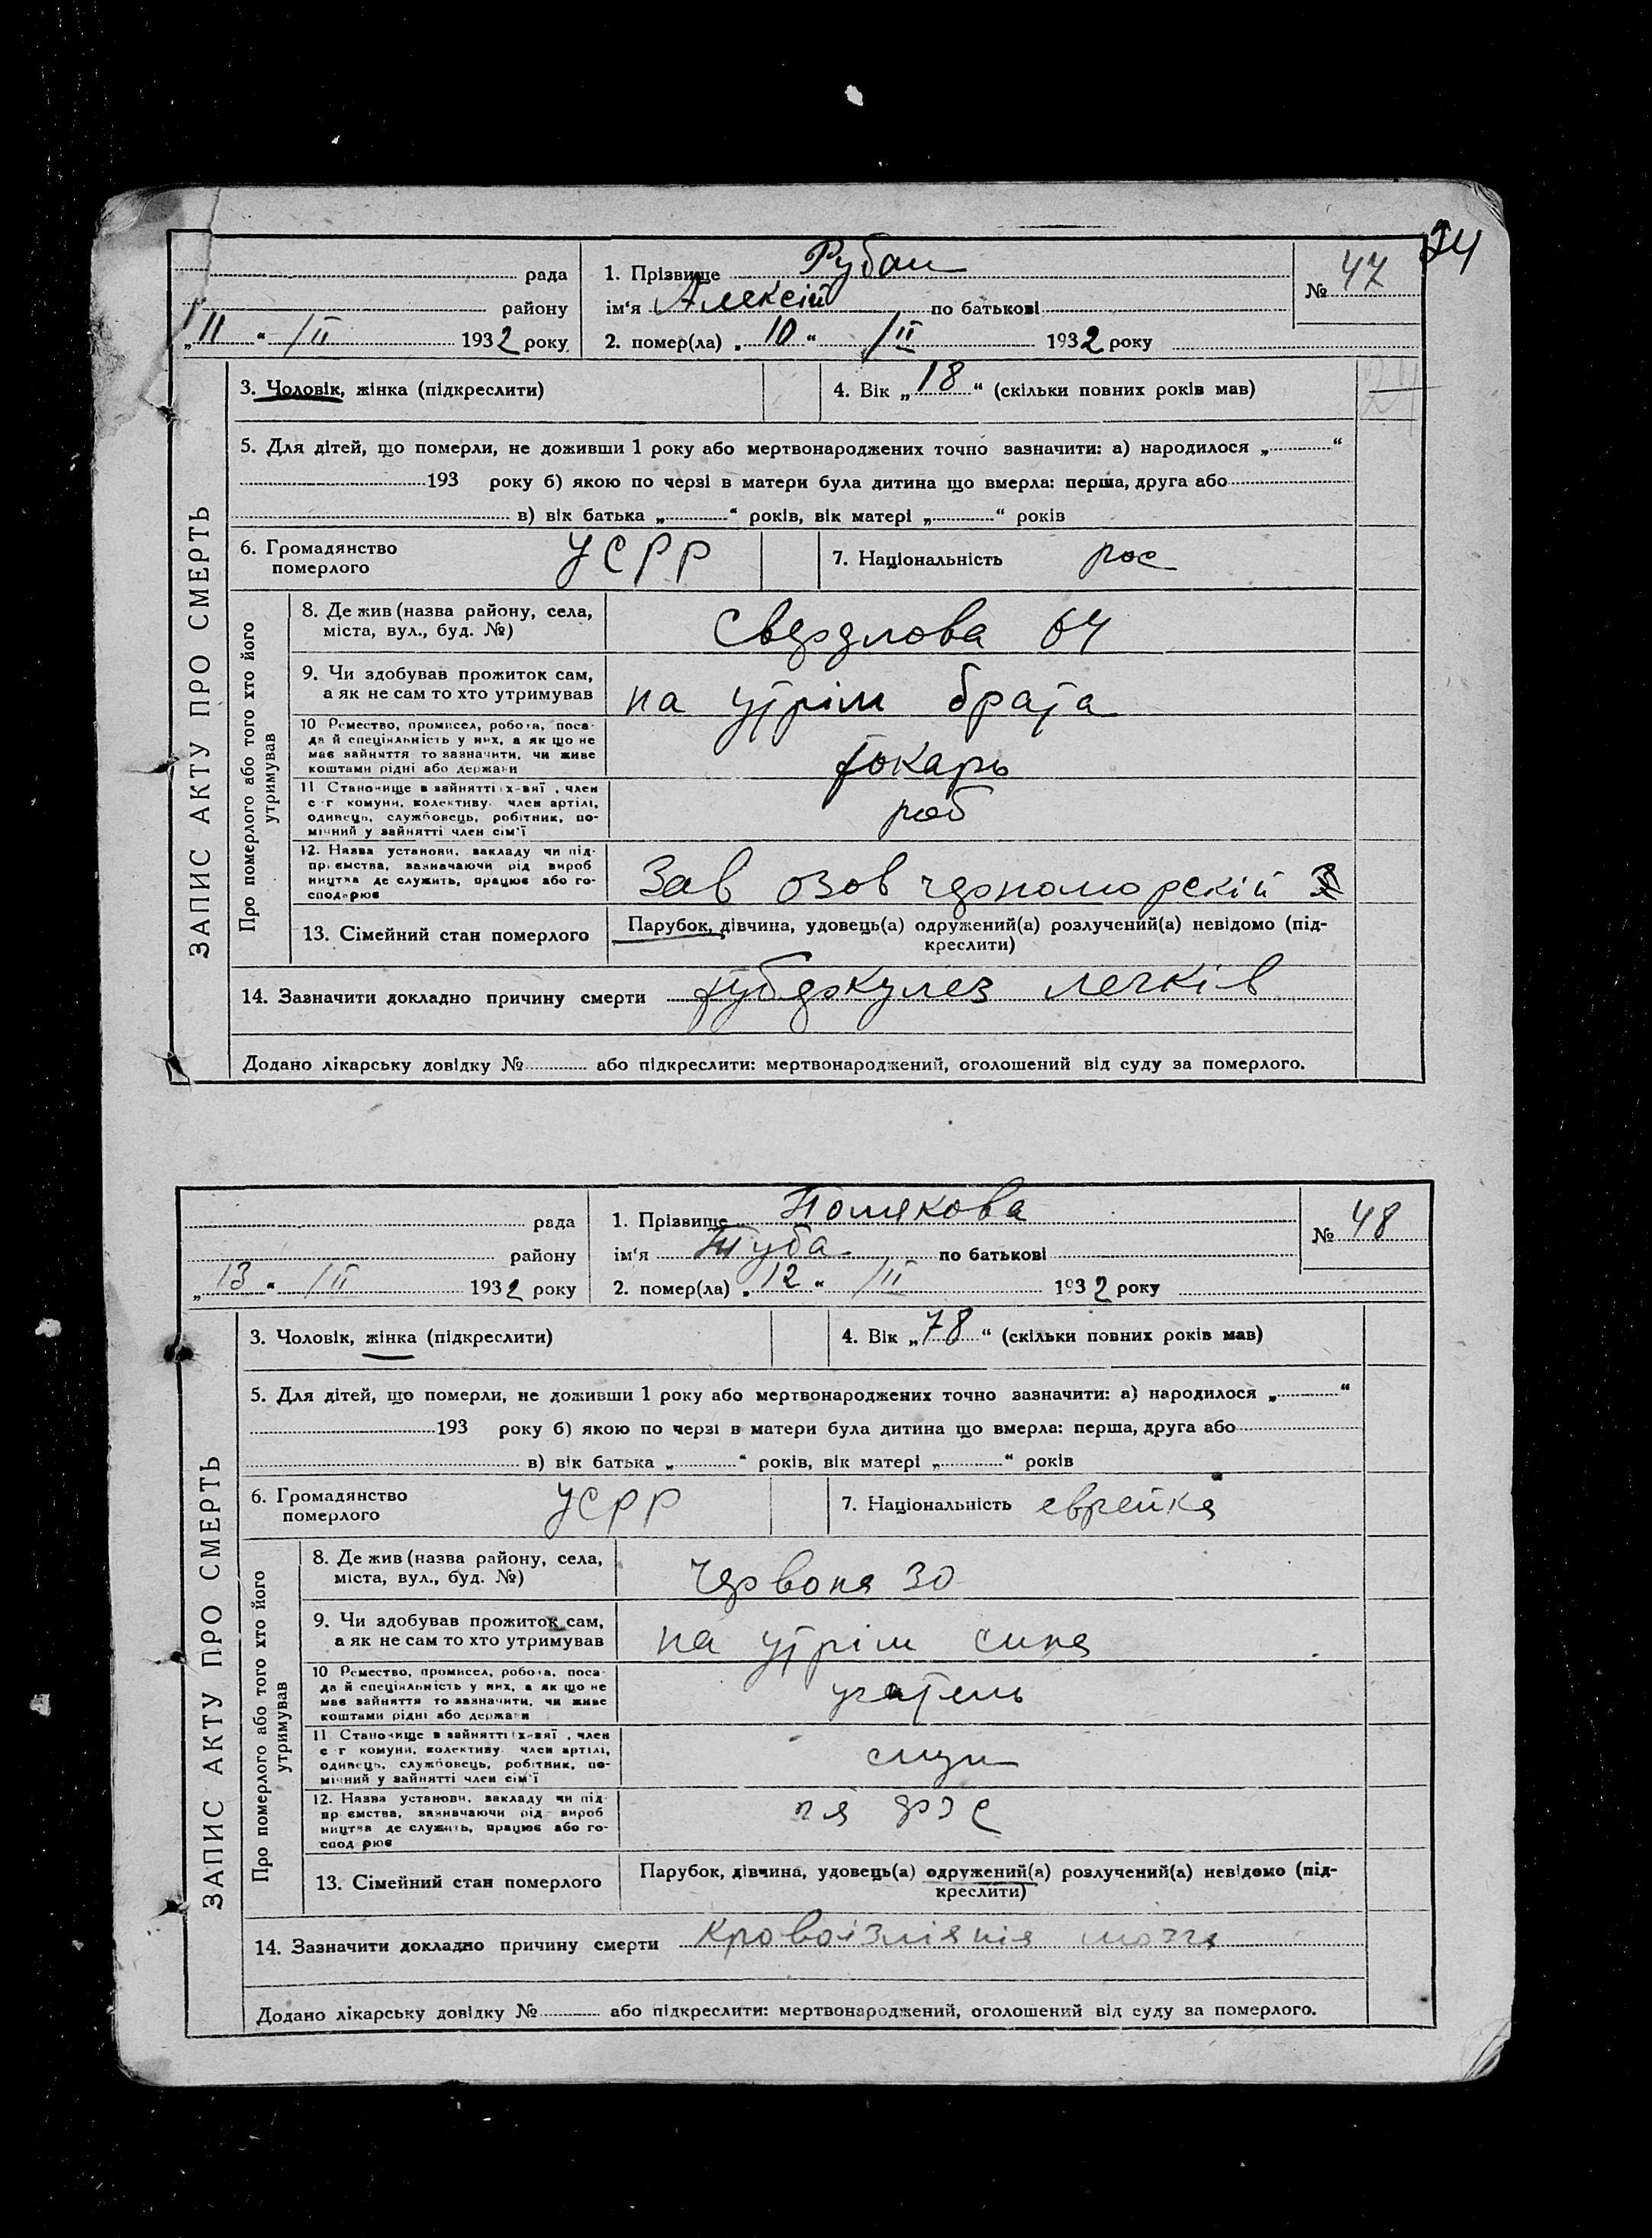 24
рада
1. Прізвище Рубан
№ 47
району
ім‘я Алексій по батькові
„11“ /II 1932 року
2. помер(ла) „10“ /II 1932 року
ЗАПИС АКТУ ПРО СМЕРТЬ
3. Чоловік, жінка (підкреслити)
4. Вік „18“ (скільки повних років мав)
5. Для дітей, що померли, не доживши 1 року або мертвонароджених точно зазначити: а) народилося „ “
193 року б) якою по черзі в матери була дитина що вмерла: перша, друга або
в) вік батька „ “ років, вік матері „ “ років
6. Громадянство
померлого
УСРР
7. Національність рос
Про померлого або того хто його
утримував
8. Де жив (назва району, села,
міста, вул., буд. №)
Свердлова 64
9. Чи здобував прожиток сам,
а як не сам то хто утримував
на утрім брата
10 Ремество, промисел, робота, поса-
да й спеціяльність у них, а як що не
має зайняття то зазначити, чи живе
коштами рідні або держави
токарь
11 Становище в зайнятті х-вяї, член
с-г комуни, колективу член артілі,
одинець, службовець, робітник, по-
мічний у зайнятті член сім'ї
роб
12. Назва установи, закладу чи під-
приємства, зазначаючи рід вироб
ництва де служить, працює або го-
сподарює
Зав озов чорноморскій
13. Сімейний стан померлого
Парубок, дівчина, удовець(а) одружений(а) розлучений(а) невідомо (під-
креслити)
14. Зазначити докладно причину смерти туберкулез легків
Додано лікарську довідку № або підкреслити: мертвонароджений, оголошений від суду за померлого.
рада
1. Прізвище Полякова
№ 48
району
ім‘я Туба по батькові
„13“ /II 1932 року
2. помер(ла) „12“ /II 1932 року
ЗАПИС АКТУ ПРО СМЕРТЬ
3. Чоловік, жінка (підкреслити)
4. Вік „78“ (скільки повних років мав)
5. Для дітей, що померли, не доживши 1 року або мертвонароджених точно зазначити: а) народилося „ “
193 року б) якою по черзі в матери була дитина що вмерла: перша, друга або
в) вік батька „ “ років, вік матері „ “ років
6. Громадянство
померлого
УСРР
7. Національність еврейка
Про померлого або того хто його
утримував
8. Де жив (назва району, села,
міста, вул., буд. №)
Червона 30
9. Чи здобував прожиток сам,
а як не сам то хто утримував
на утрім сина
10 Ремество, промисел, робота, поса-
да й спеціяльність у них, а як що не
має зайняття то зазначити, чи живе
коштами рідні або держави
учатель
11 Становище в зайнятті х-вяї, член
с-г комуни, колективу член артілі,
одинець, службовець, робітник, по-
мічний у зайнятті член сім'ї
служ
12. Назва установи, закладу чи під-
приємства, зазначаючи рід вироб
ництва де служить, працює або го-
сподарює
13. Сімейний стан померлого
Парубок, дівчина, удовець(а) одружений(а) розлучений(а) невідомо (під-
креслити)
14. Зазначити докладно причину смерти кровоізліянія мозга
Додано лікарську довідку № або підкреслити: мертвонароджений, оголошений від суду за померлого.